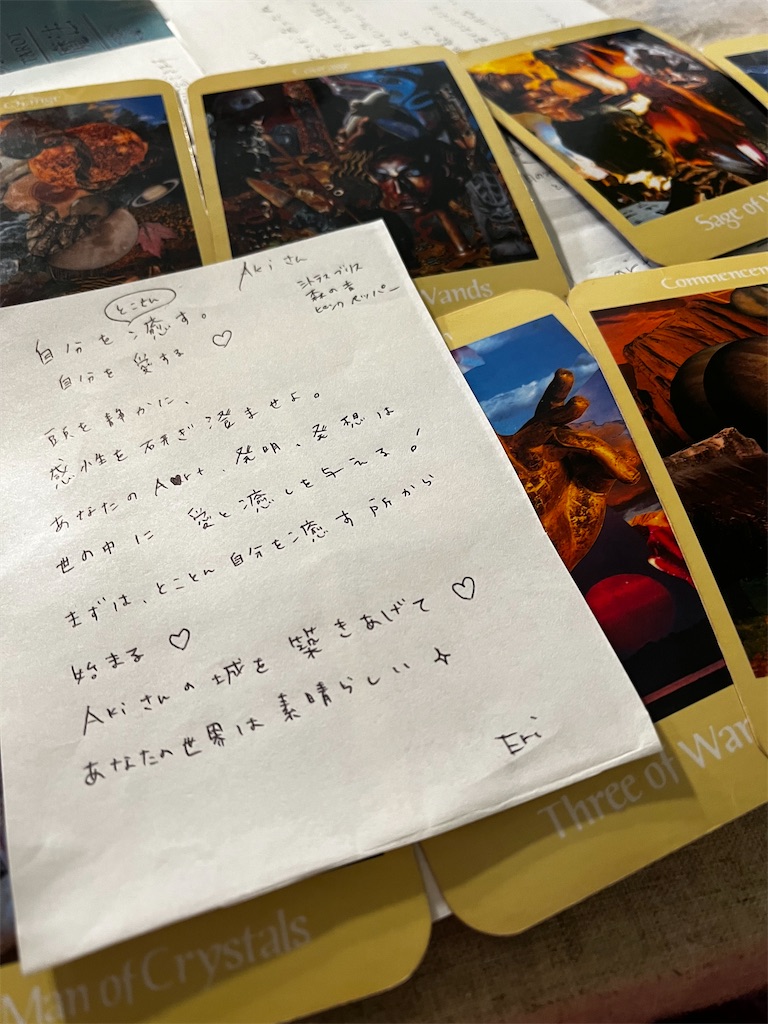 Sage of W
Wands
Commencem
Aki さん
シトラスブリス
森の香
ピンクペッパー
とことん
自分を癒す。
自分を愛する ♡
頭を静かに、
感性を研ぎ澄ませよ。
あなたのA♥rt、発明、発想は
世の中に 愛と癒しを与える!
まずは、とことん自分を癒す所から
始まる ♡
Akiさんの城を築きあげて ♡
あなたの世界は素晴らしい ✧
Eri
Three of Wan
Man of Crystals